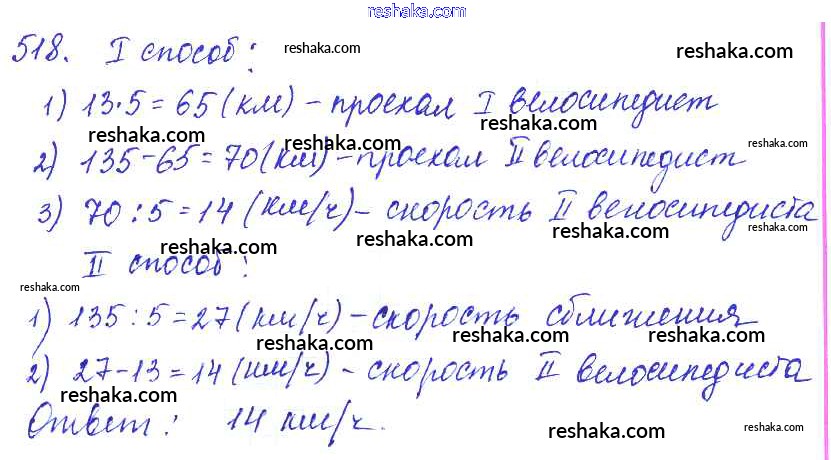 reshaka.com
518. I способ:
reshaka.com reshaka.com
1) 13·5=65(км) – проехал I велосипедист
reshaka.com reshaka.com reshaka.com reshaka.com
2) 135-65=70(км)–проехал II велосипедист
reshaka.com
3) 70:5=14 (км/ч)– скорость II велосипедиста
reshaka.com reshaka.com reshaka.com
II способ:
reshaka.com
1) 135:5=27(км/ч)–скорость сближения
reshaka.com reshaka.com reshaka.com
2) 27-13=14(км/ч) – скорость II велосипедиста
reshaka.com reshaka.com reshaka.com
Ответ: 14 км/ч.
reshaka.com reshaka.com